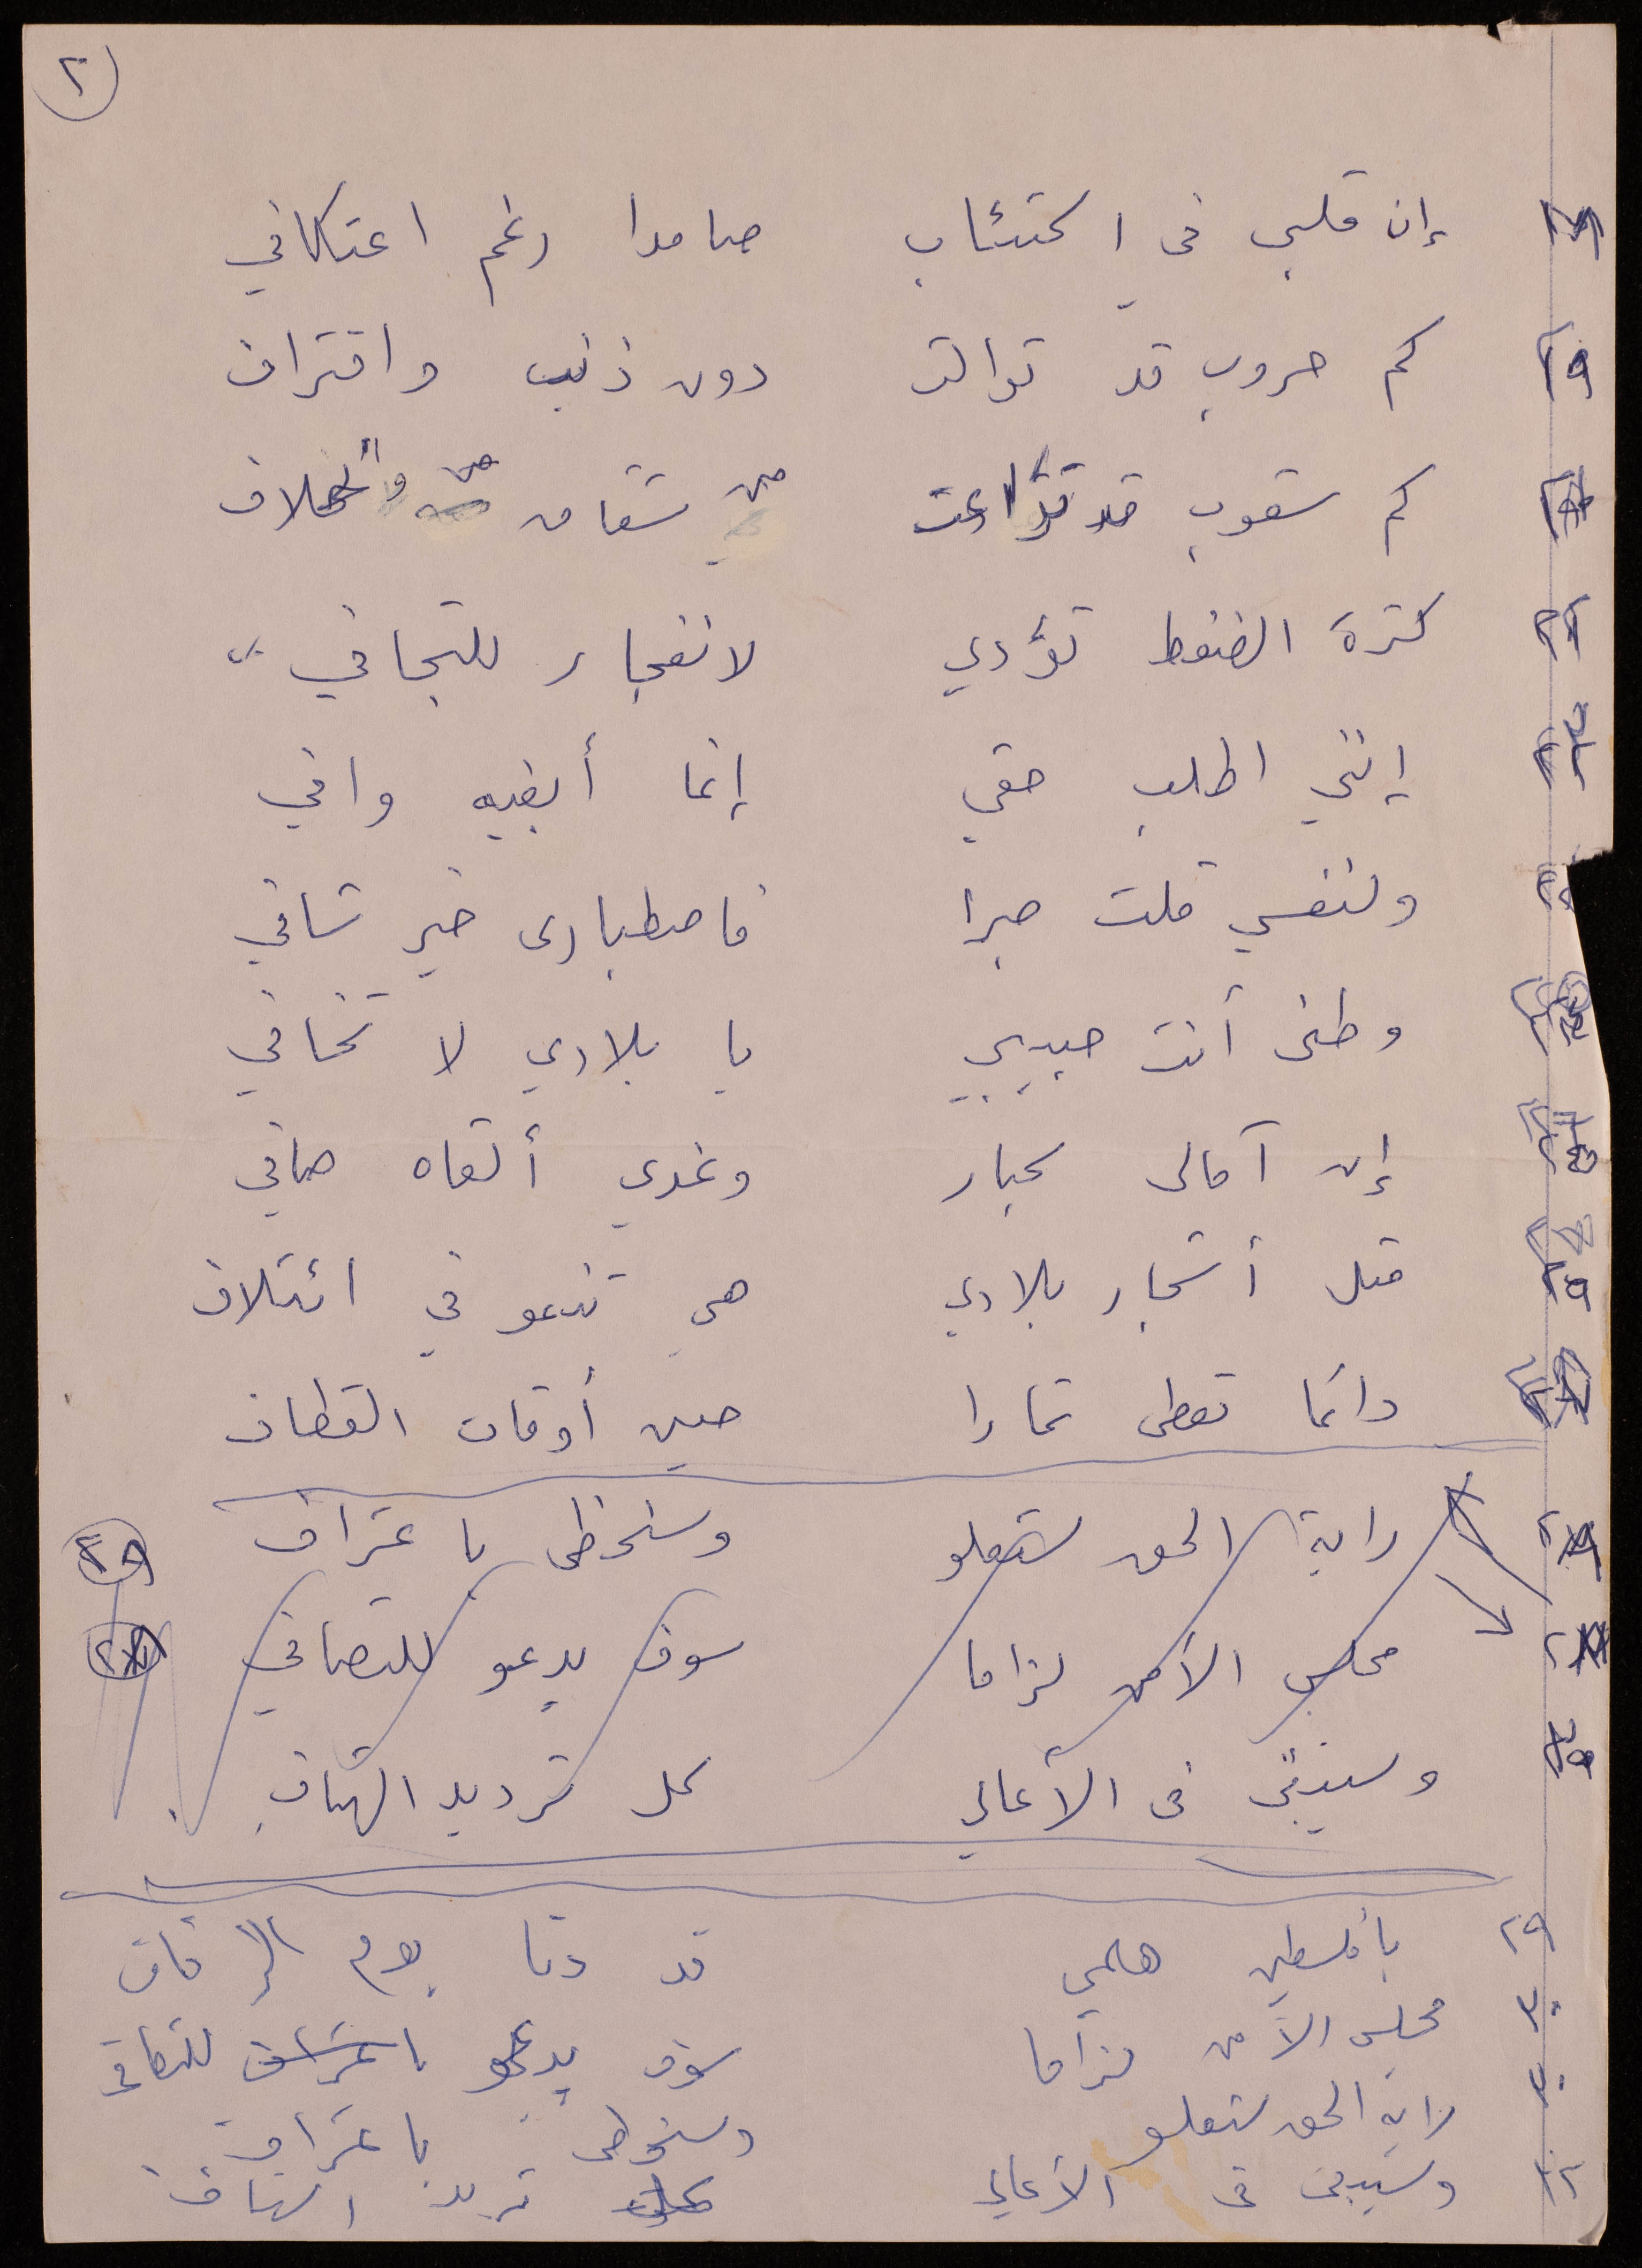 ٢
إن قلبي في اكتئاب صامدا رغم اعتكافي
كم حروب قد توالت دون ذنب واقتراف
كم شعوب قد تداعت من شقاق من وأحلاف
كثرة الضغط تؤدي لانفجار للتجافي
إنني اطلب حقي إنما أبغيه وافي
ولنفسي قلت صبرا فاصطباري خير شافي
وطني أنت حبيبي يا بلادي لا تخافي
إن آمالي كبار وغدي ألقاه صافي
مثل أشجار بلادي هي تنمو في ائتلاف
دائما تعطي ثمارا حين أوقات القطاف
راية الحق ستعلو وسنحظى باعتراف
مجلس الأمن لزاما سوف يدعو للتصافي
وسيبقى في الأعالي كل ترديد الهتاف
٢٩ يا فلسطين هلمي قد دنا يوم الزفاف
٣٠ مجلس الأمن لزاما سوف يدعو باعتراف للتصافي
٣٠ راية الحق ستعلو وسنحظى باعتراف
وسيبقى في الأعالي كل ترديد الهتاف